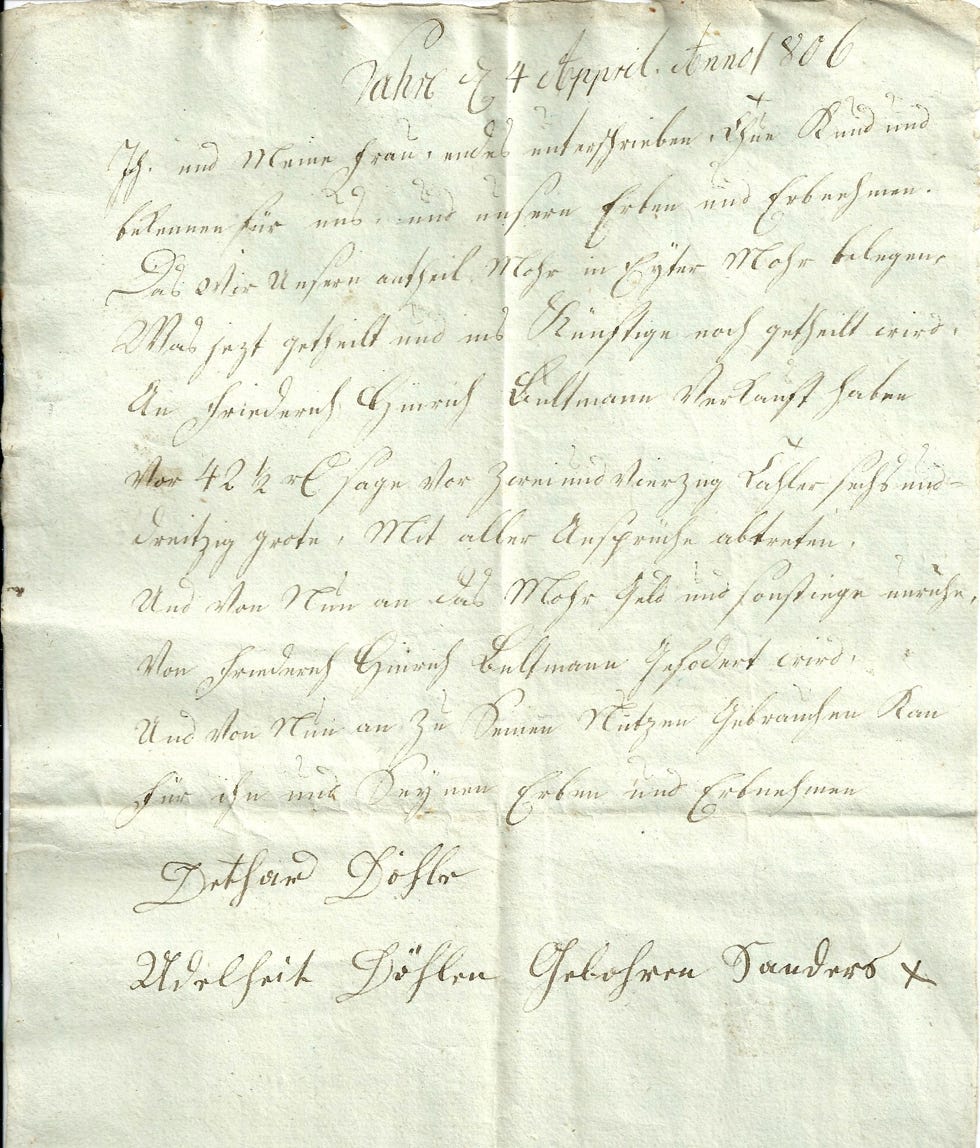 Jahre d 4 Appril. Anno 1806
Ich. und Meine Frau. endes unterschrieben. Thue Kund und
bekennen für uns. und unsern Erben und Erbnehmen.
Das Wir Unsern antheil Mohr in Eyter Mohr belegen,
Was jezt getheilt und ins Künftige noch getheilt wird.
An Friederich Hinrich Bultmann Verkauft haben
Vor 42 ½ rt sage Vor Zwei und Vierzug Tahler sechs und=
dreitzig grote, Mit aller Ansprüche abtreten.
Und Von Nun an das Mohr Geld und sonstiege unruhe,
Von Friederich Hinrich Bultmann Gefodert wird.
Und Von Nun an Zu Seinen Nutzen Gebrauchen Kan
für ihn und Seynen Erben und Erbnehmen
Dethard Döhle
Adelheit Döhlen Gebohren Sanders x